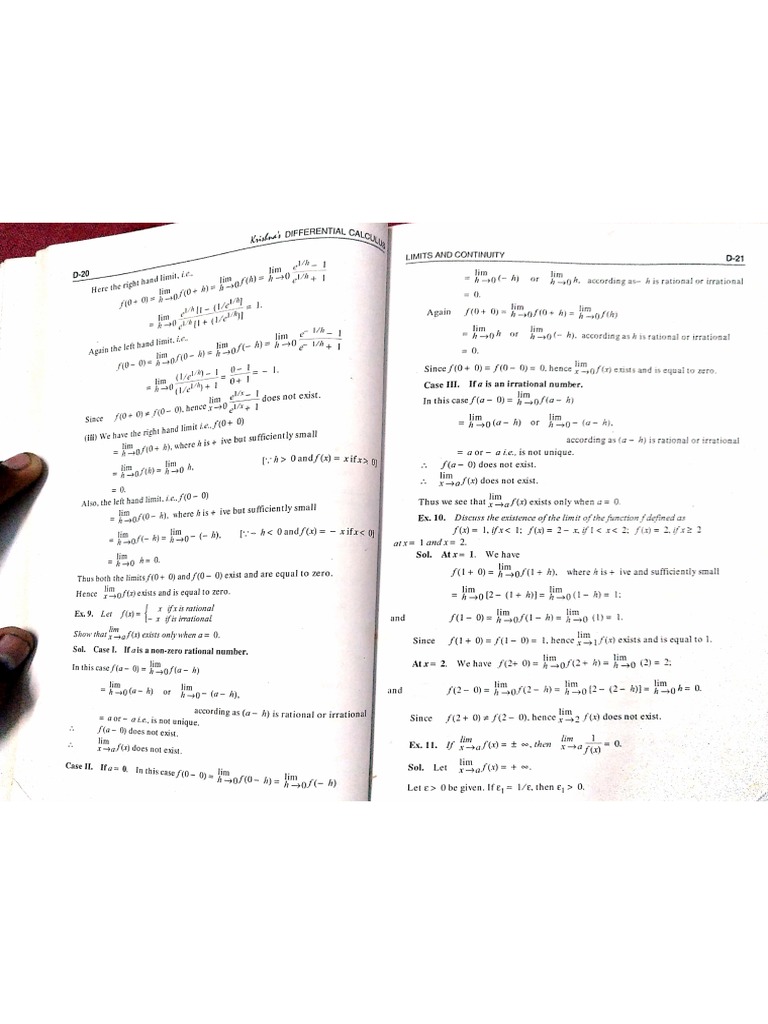 D-20 Krishna's DIFFERENTIAL CALCULUS
Here the right hand limit, i.e..
f(0 + 0) = lim h→0 f(0 + h) = lim h→0 f(h) = lim h→0 (e^{1/h} − 1)/(e^{1/h} + 1)
= lim h→0 e^{1/h} [1 − (1/e^{1/h})]/e^{1/h} [1 + (1/e^{1/h})] = 1.
Again the left hand limit, i.e..
f(0 − 0) = lim h→0 f(0 − h) = lim h→0 f(− h) = lim h→0 (e^{− 1/h} − 1)/(e^{− 1/h} + 1)
= lim h→0 ((1/e^{1/h}) − 1)/((1/e^{1/h}) + 1) = (0 − 1)/(0 + 1) = − 1.
Since f(0 + 0) ≠ f(0 − 0), hence lim x→0 (e^{1/x} − 1)/(e^{1/x} + 1) does not exist.
(iii) We have the right hand limit i.e., f(0 + 0)
= lim h→0 f(0 + h), where h is + ive but sufficiently small
= lim h→0 f(h) = lim h→0 h, [∵ h > 0 and f(x) = x if x > 0]
= 0.
Also, the left hand limit, i.e., f(0 − 0)
= lim h→0 f(0 − h), where h is + ive but sufficiently small
= lim h→0 f(− h) = lim h→0 − (− h), [∵ − h < 0 and f(x) = − x if x < 0]
= lim h→0 h = 0.
Thus both the limits f(0 + 0) and f(0 − 0) exist and are equal to zero.
Hence lim x→0 f(x) exists and is equal to zero.
Ex. 9. Let f(x) = { x if x is rational
− x if is irrational
Show that lim x→a f(x) exists only when a = 0.
Sol. Case I. If a is a non-zero rational number.
In this case f(a − 0) = lim h→0 f(a − h)
= lim h→0 (a − h) or lim h→0 − (a − h),
according as (a − h) is rational or irrational
= a or − a i.e., is not unique.
∴ f(a − 0) does not exist.
∴ lim x→a f(x) does not exist.
Case II. If a = 0. In this case f(0 − 0) = lim h→0 f(0 − h) = lim h→0 f(− h)
LIMITS AND CONTINUITY D-21
= lim h→0 (− h) or lim h→0 h, according as− h is rational or irrational
= 0.
Again f(0 + 0) = lim h→0 f(0 + h) = lim h→0 f(h)
= lim h→0 h or lim h→0 (− h), according as h is rational or irrational
= 0.
Since f(0 + 0) = f(0 − 0) = 0, hence lim x→0 f(x) exists and is equal to zero.
Case III. If a is an irrational number.
In this case f(a − 0) = lim h→0 f(a − h)
= lim h→0 (a − h) or lim h→0 − (a − h),
according as (a − h) is rational or irrational
= a or − a i.e., is not unique.
∴ f(a − 0) does not exist.
∴ lim x→a f(x) does not exist.
Thus we see that lim x→a f(x) exists only when a = 0.
Ex. 10. Discuss the existence of the limit of the function f defined as
f(x) = 1, if x < 1; f(x) = 2 − x, if 1 < x < 2; f(x) = 2, if x ≥ 2
at x = 1 and x = 2.
Sol. At x = 1. We have
f(1 + 0) = lim h→0 f(1 + h), where h is + ive and sufficiently small
= lim h→0 [2 − (1 + h)] = lim h→0 (1 − h) = 1;
and f(1 − 0) = lim h→0 f(1 − h) = lim h→0 (1) = 1.
Since f(1 + 0) = f(1 − 0) = 1, hence lim x→1 f(x) exists and is equal to 1.
At x = 2. We have f(2+ 0) = lim h→0 f(2 + h) = lim h→0 (2) = 2;
and f(2 − 0) = lim h→0 f(2 − h) = lim h→0 [2 − (2 − h)] = lim h→0 h = 0.
Since f(2 + 0) ≠ f(2 − 0), hence lim x→2 f(x) does not exist.
Ex. 11. If lim x→a f(x) = ± ∞, then lim x→a 1/f(x) = 0.
Sol. Let lim x→a f(x) = + ∞.
Let ε > 0 be given. If ε₁ = 1/ε, then ε₁ > 0.